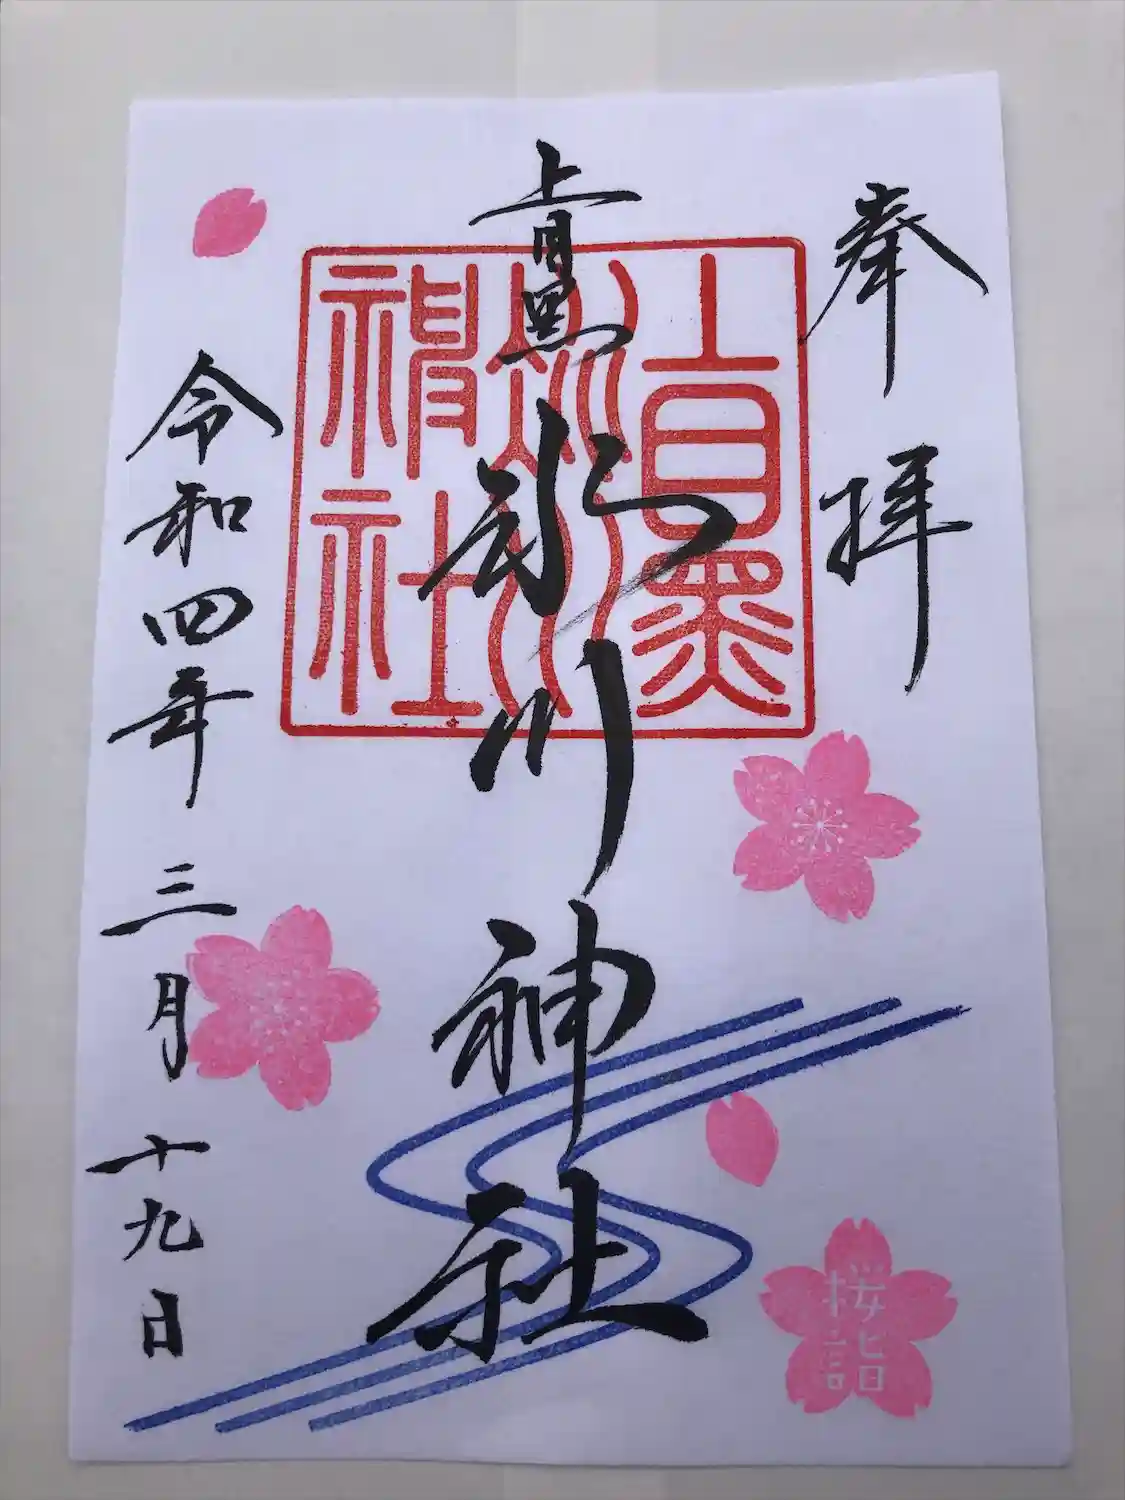 奉拝
上目黒氷川神社
上目黒
氷川
神社
令和四年三月十九日
桜詣